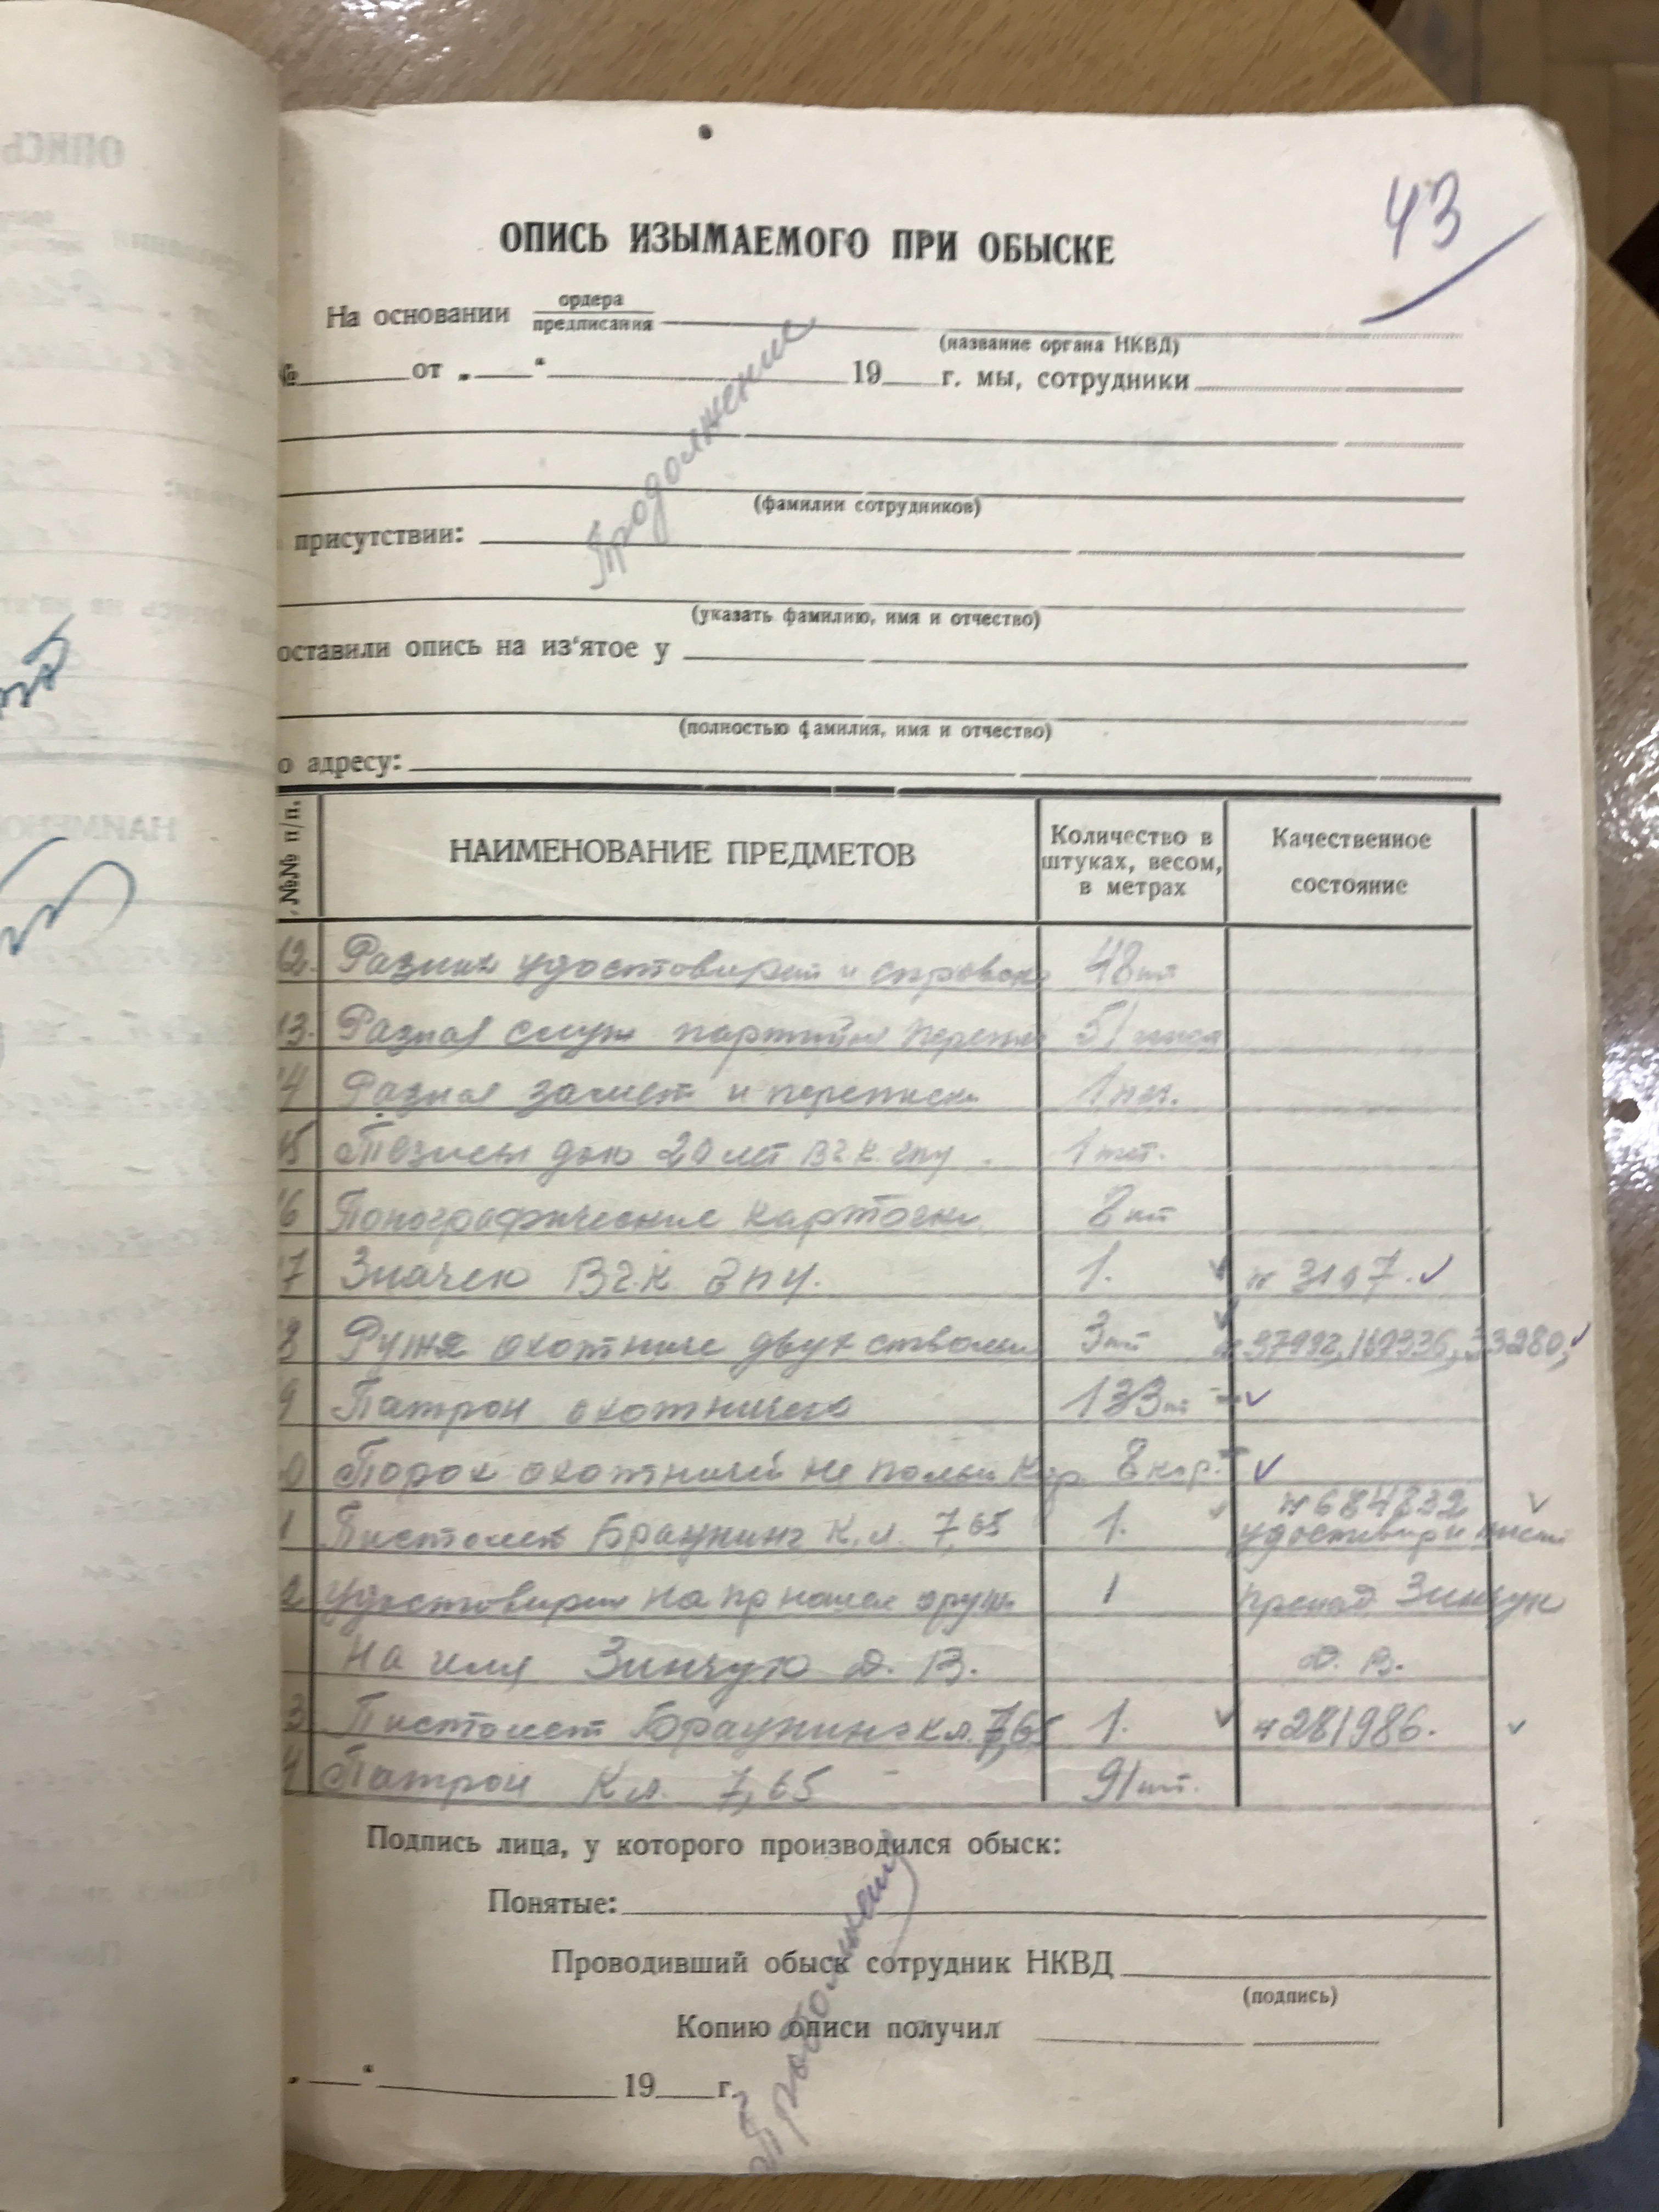 43
ОПИСЬ ИЗЫМАЕМОГО ПРИ ОБЫСКЕ
На основании ордера
предписания
(название органа НКВД)
№ от „ “ 19 г. мы, сотрудники
Продолжение
(фамилии сотрудников)
присутствии:
(указать фамилию, имя и отчество)
оставили опись на из‘ятое у
(полностью фамилия, имя и отчество)
о адресу:
№№ п/п. НАИМЕНОВАНИЕ ПРЕДМЕТОВ Количество в штуках, весом, в метрах Качественное состояние
12. Разных удостоверий и справок 48 шт
13. Разная служ партийн переп 51
14 Разная и переписки 1
15 Тезисы 20 лет ВЧК. ГПУ. 1 шт.
16 Понографические карточки 8 шт
7 Значек ВЧ.К. ГПУ. 1. № 3107.
8 Ружя охотниче двух стволн 3 шт № 37992, 169336, 33280,
9 Патрон охотничего 133 шт
0 Порох охотничий не полн кор. 8 кор.
1 Пистолет Браунинг К.л. 7,65 1. № 684832
2 удостоверен на пр ношен оруж 1 Зинчук
на имя Зинчую Ф. В. Ф. В.
3 Пистолет Браунинг кл. 7,65 1. № 281986.
4 Патрон Кл. 7,65 91 шт.
Подпись лица, у которого производился обыск:
Понятые:
Проводивший обыск сотрудник НКВД
(подпись)
Копию описи получил
„ “ 19 г.
ОПИСЬ
НАИМЕНО